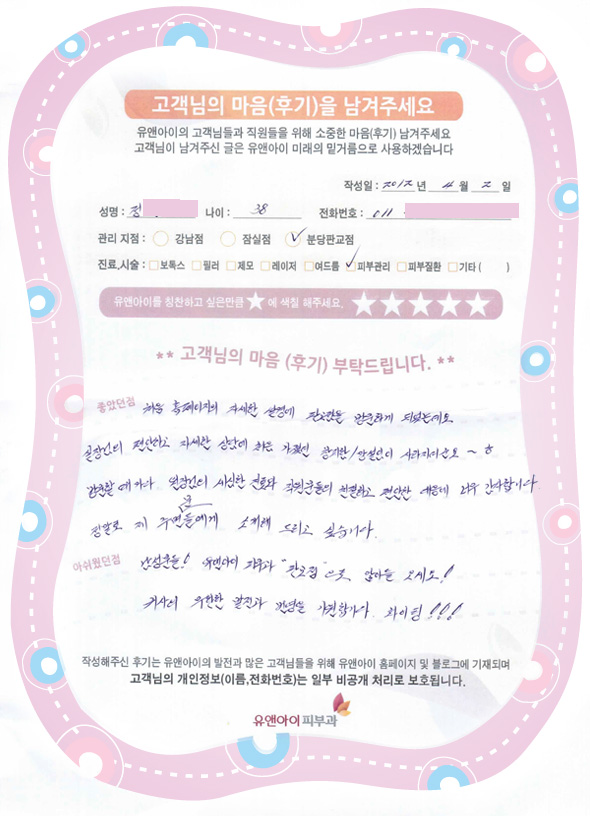 고객님의 마음(후기)을 남겨주세요
유앤아이의 고객님들과 직원들을 위해 소중한 마음(후기) 남겨주세요
고객님이 남겨주신 글은 유앤아이 미래의 밑거름으로 사용하겠습니다
작성일 : 2012 년 4 월 2 일
성명 : 정 나이 : 38 전화번호 : 011
관리 지점 : 강남점 잠실점 분당판교점
진료,시술 : 보톡스 필러 제모 레이저 여드름 피부관리 피부질환 기타 ( )
유앤아이를 칭찬하고 싶은만큼 ★ 에 색칠 해주세요. ★★★★★
** 고객님의 마음 (후기) 부탁드립니다. **
좋았던점 처음 홈페이지의 자세한 설명에 판교점을 방문하게 되었는데요
실장님의 편안하고 자세한 상담에 처음 가졌던 / 사라지더군요 ~
방문할 때마다 원장님의 세심한 진료와 직원분들의 친절하고 편안한 너무 감사합니다
정말로 제 주변분들에게 소개해 드리고 싶습니다.
아쉬웠던점 남성분들! 유앤아이 피부과 "판교점"으로 많이들 오세요!
귀사의 무한한 발전과 번영을 기원합니다. 화이팅!!!
작성해주신 후기는 유앤아이의 발전과 많은 고객님들을 위해 유앤아이 홈페이지 및 블로그에 기재되며
고객님의 개인정보(이름,전화번호)는 일부 비공개 처리로 보호됩니다.
유앤아이피부과